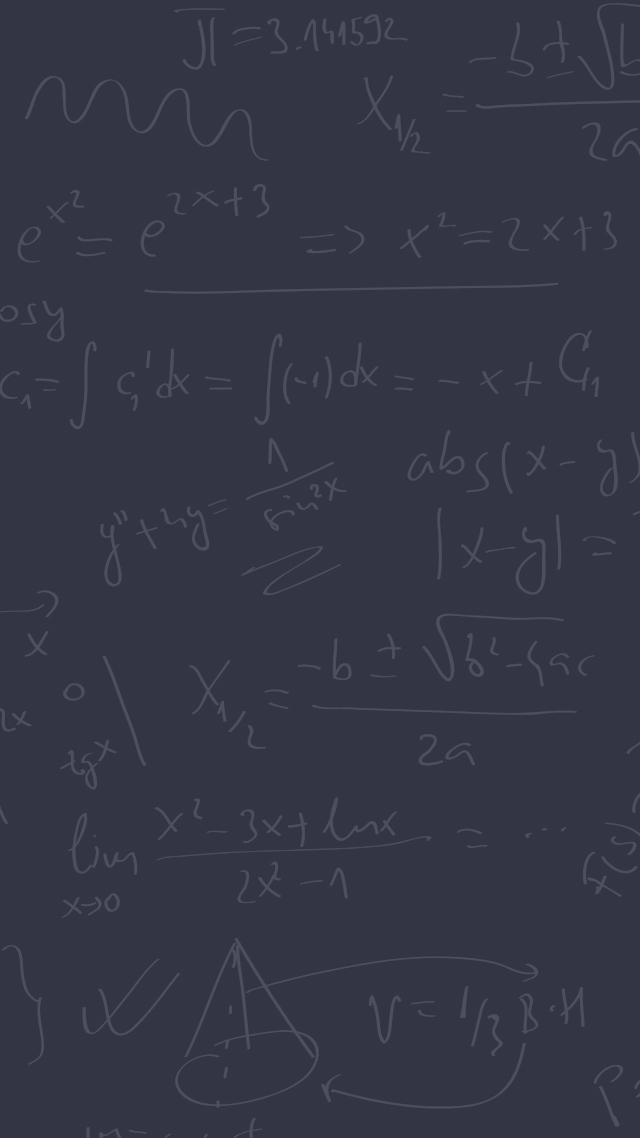 π = 3.141592
X_{1/2} = \frac{-b ± \sqrt{b}}{2a}
e^{x^2} = e^{2x+3} => x^2 = 2x+3
osy
C_1 = ∫ C_1' dx = ∫(-1) dx = - x + C_1
abs(x - y)
y'' + 4y = \frac{1}{sin^2 x}
|x - y| =
x
0
2x
tg x
X_{1/2} = \frac{-b ± \sqrt{b^2 - 4ac}}{2a}
lim_{x→0} \frac{x^2 - 3x + ln x}{2x^2 - 1} = ...
}
V = 1/3 B · H